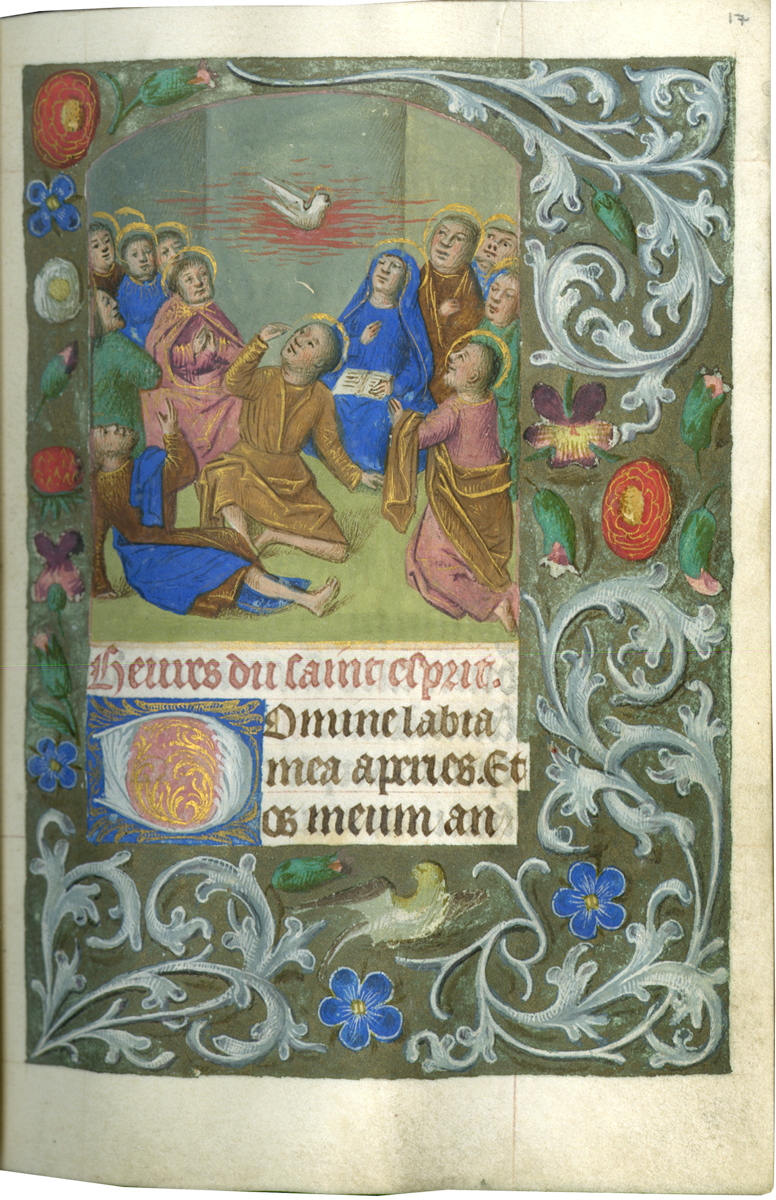 17
Heures du saint esprit.
Domine labia
mea aperies. Et
os meum an